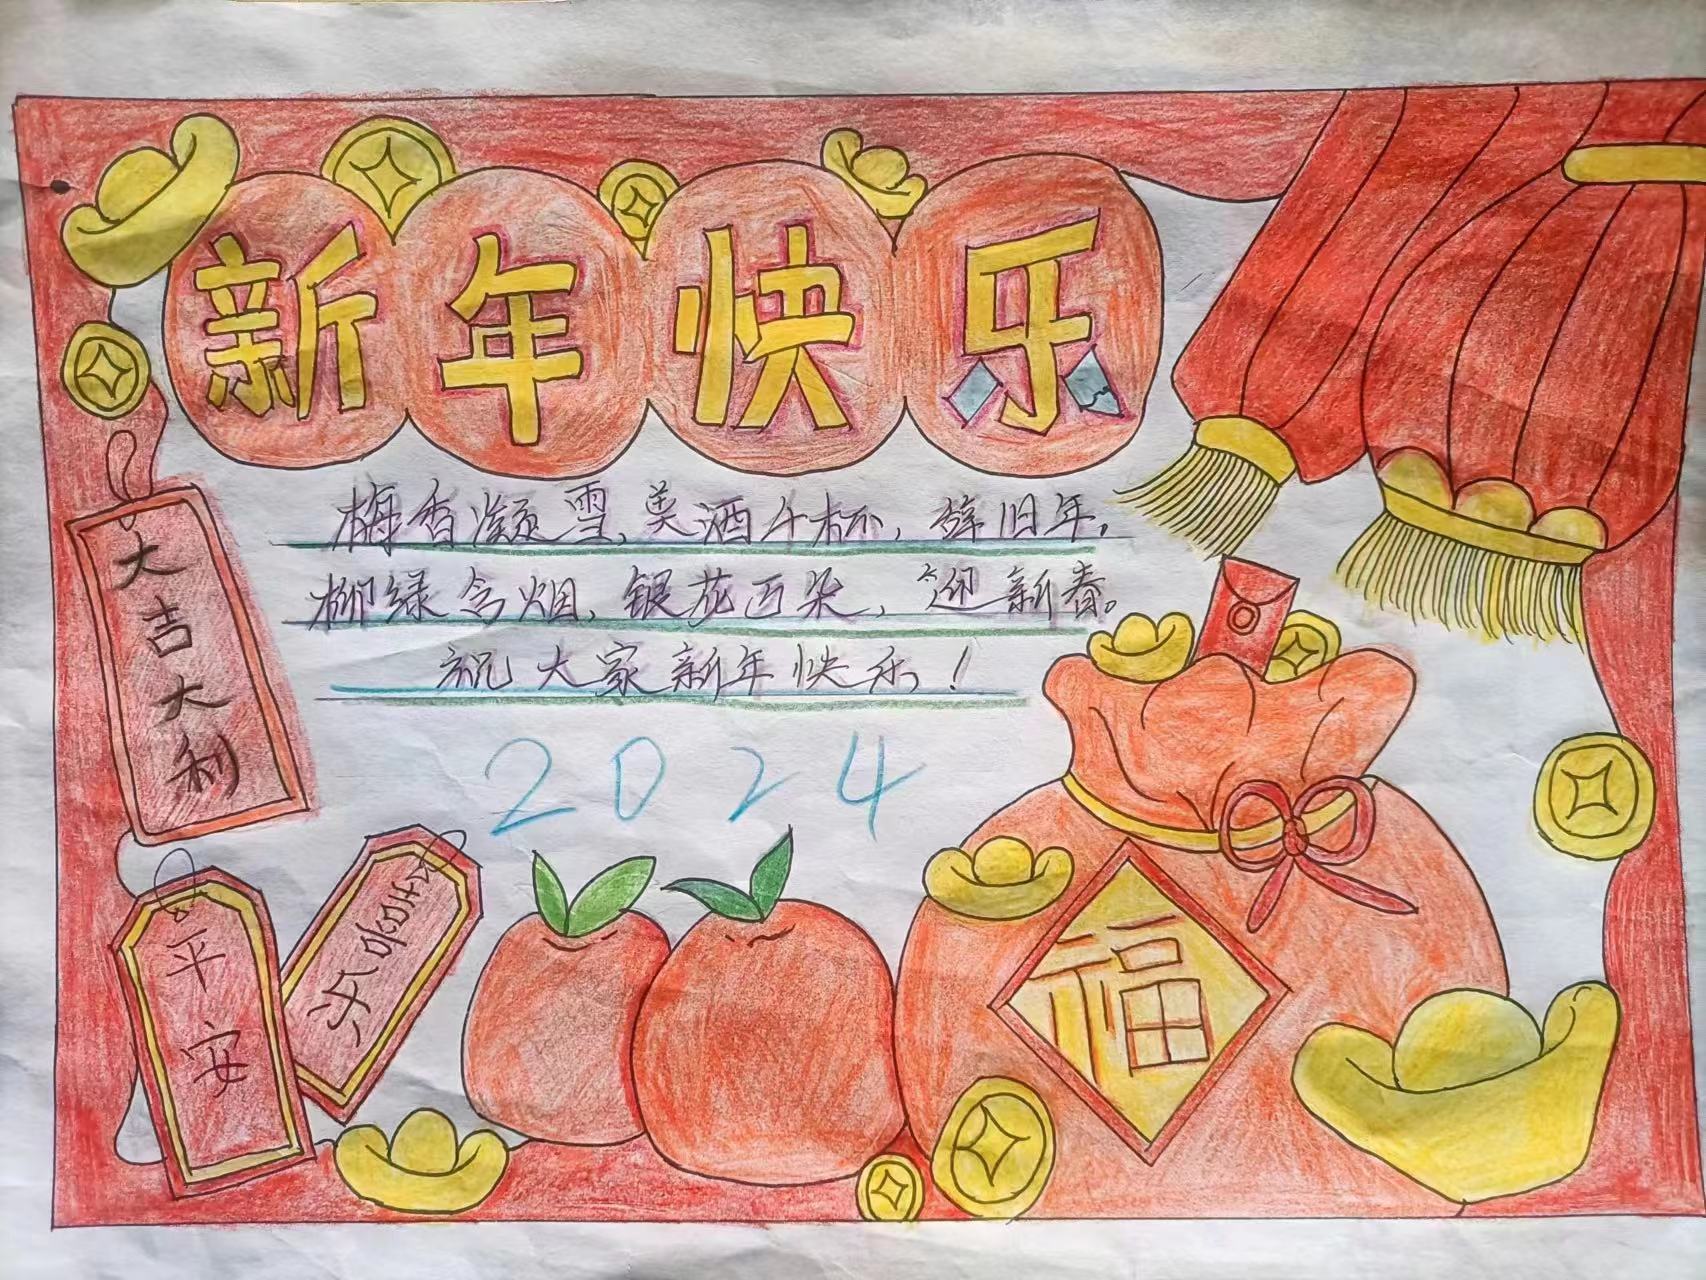 新年快乐
梅香凝雪,美酒千杯,辞旧年,
柳绿含烟,银花万朵,迎新春。
祝大家新年快乐!
2024
大吉大利
平安
福